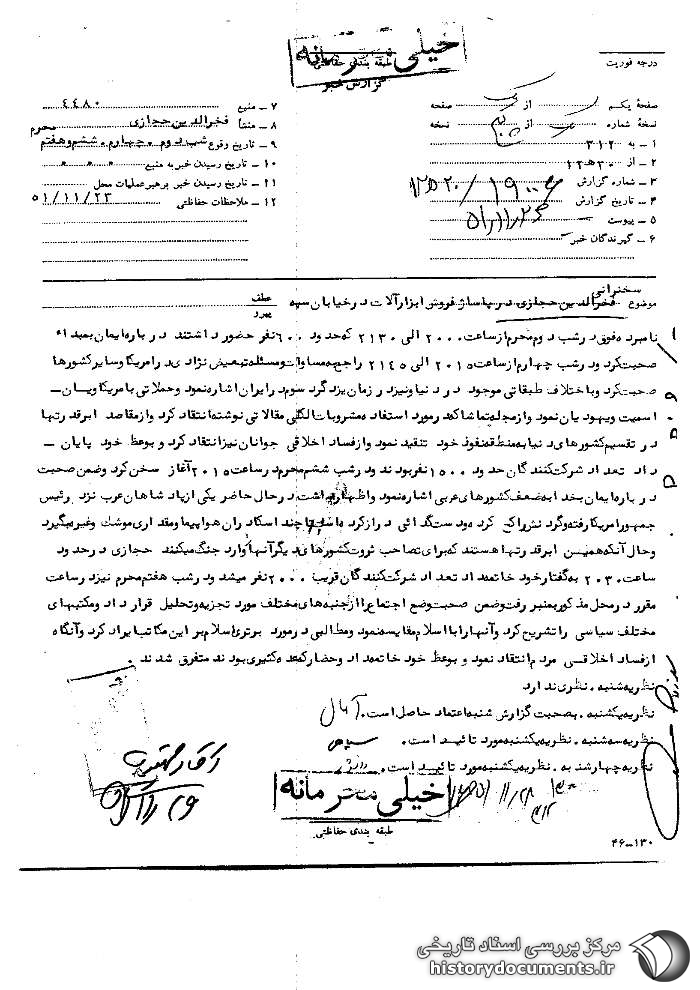 خیلی محرمانه
طبقه بندی حفاظتی
گزارش خبر
درجه فوریت
صفحهٔ یکم از صفحه
نسخهٔ شماره از نسخه
۱ – به ۳۱۲
۲ – از ۱۲ ه ۲۰
۳ – شماره گزارش
۴ – تاریخ گزارش
۵ – پیوست
۶ – گیرندگان خبر
۷ – منبع ۴۴۸۰
۸ – منشأ فخرالدین حجازی
۹ – تاریخ وقوع شب دوم ۰ چهارم ۰ ششم و هفتم محرم
۱۰ – تاریخ رسیدن خبر به منبع ۰ ۰ ۰
۱۱ – تاریخ رسیدن خبر برهبر عملیات محل
۱۲ – ملاحظات حفاظتی ۵۱/۱۱/۲۳
موضوع سخنرانی فخرالدین حجازی در پاساژ فروش ابزارآلات در خیابان سپه
عطف
پیرو
نامبرده فوق در شب دوم محرم از ساعت ۲۰۰۰ الی ۲۱۳۰ که حدود ۶۰۰ نفر حضور داشتند درباره ایمان بمبداء
صحبت کرد و در شب چهارم از ساعت ۲۰۱۵ الی ۲۱۴۵ راجع به مساوات و مسئله تبعیض نژادی در امریکا و سایر کشورها
صحبت کرد و باختلاف طبقاتی موجود در دنیا و نیز در زمان یزدگرد سوم در ایران اشاره نمود و حملاتی بامریکا و یان –
اسمیت و یهودیان نمود و از مجله تماشا که در مورد استفاده مشروبات الکلی مقالاتی نوشته انتقاد کرد و از مقاصد ابرقدرتها
در تقسیم کشورهای دنیا به منطقه نفوذ خود تنقید نمود و از فساد اخلاقی جوانان نیز انتقاد کرد و بوعظ خود پایان –
داد تعداد شرکت کنندگان حدود ۱۵۰۰ نفر بودند و در شب ششم محرم در ساعت ۲۰۱۵ آغاز سخن کرد و ضمن صحبت
درباره ایمان بخدا به ضعف کشورهای عربی اشاره نمود و اظهار داشت در حال حاضر یکی از پادشاهان عرب نزد رئیس
جمهور امریکا رفته و گردنش را کج کرده و دست گدائی دراز کرده است تا چند اسکادران هواپیما و مقداری موشک و غیره بگیرد
و حال آنکه همین ابرقدرتها هستند که برای تصاحب ثروت کشورهای دیگر آنها وارد جنگ میکنند حجازی در حدود
ساعت ۲۰۳۰ به گفتار خود خاتمه داد تعداد شرکت کنندگان قریب ۲۰۰۰ نفر میشد و در شب هفتم محرم نیز در ساعت
مقرر در محل مذکور به منبر رفت و ضمن صحبت وضع اجتماع را از جنبه های مختلف مورد تجزیه و تحلیل قرار داد و مکتبهای
مختلف سیاسی را تشریح کرد و آنها را با اسلام مقایسه نمود و مطالبی در مورد برتری اسلام بر این مکاتب ایراد کرد و آنگاه
از فساد اخلاقی مردم انتقاد نمود و بوعظ خود خاتمه داد و حضار که عده کثیری بودند متفرق شدند
نظریه شنبه ۰ نظری ندارد
نظریه یکشنبه ۰ بصحت گزارش شنبه اعتماد حاصل است ۰
نظریه سه شنبه ۰ نظریه یکشنبه مورد تائید است ۰
نظریه چهارشنبه ۰ نظریه یکشنبه مورد تائید است ۰
خیلی محرمانه
طبقه بندی حفاظتی
۴۶-۱۳۰
مرکز بررسی اسناد تاریخی
historydocuments.ir